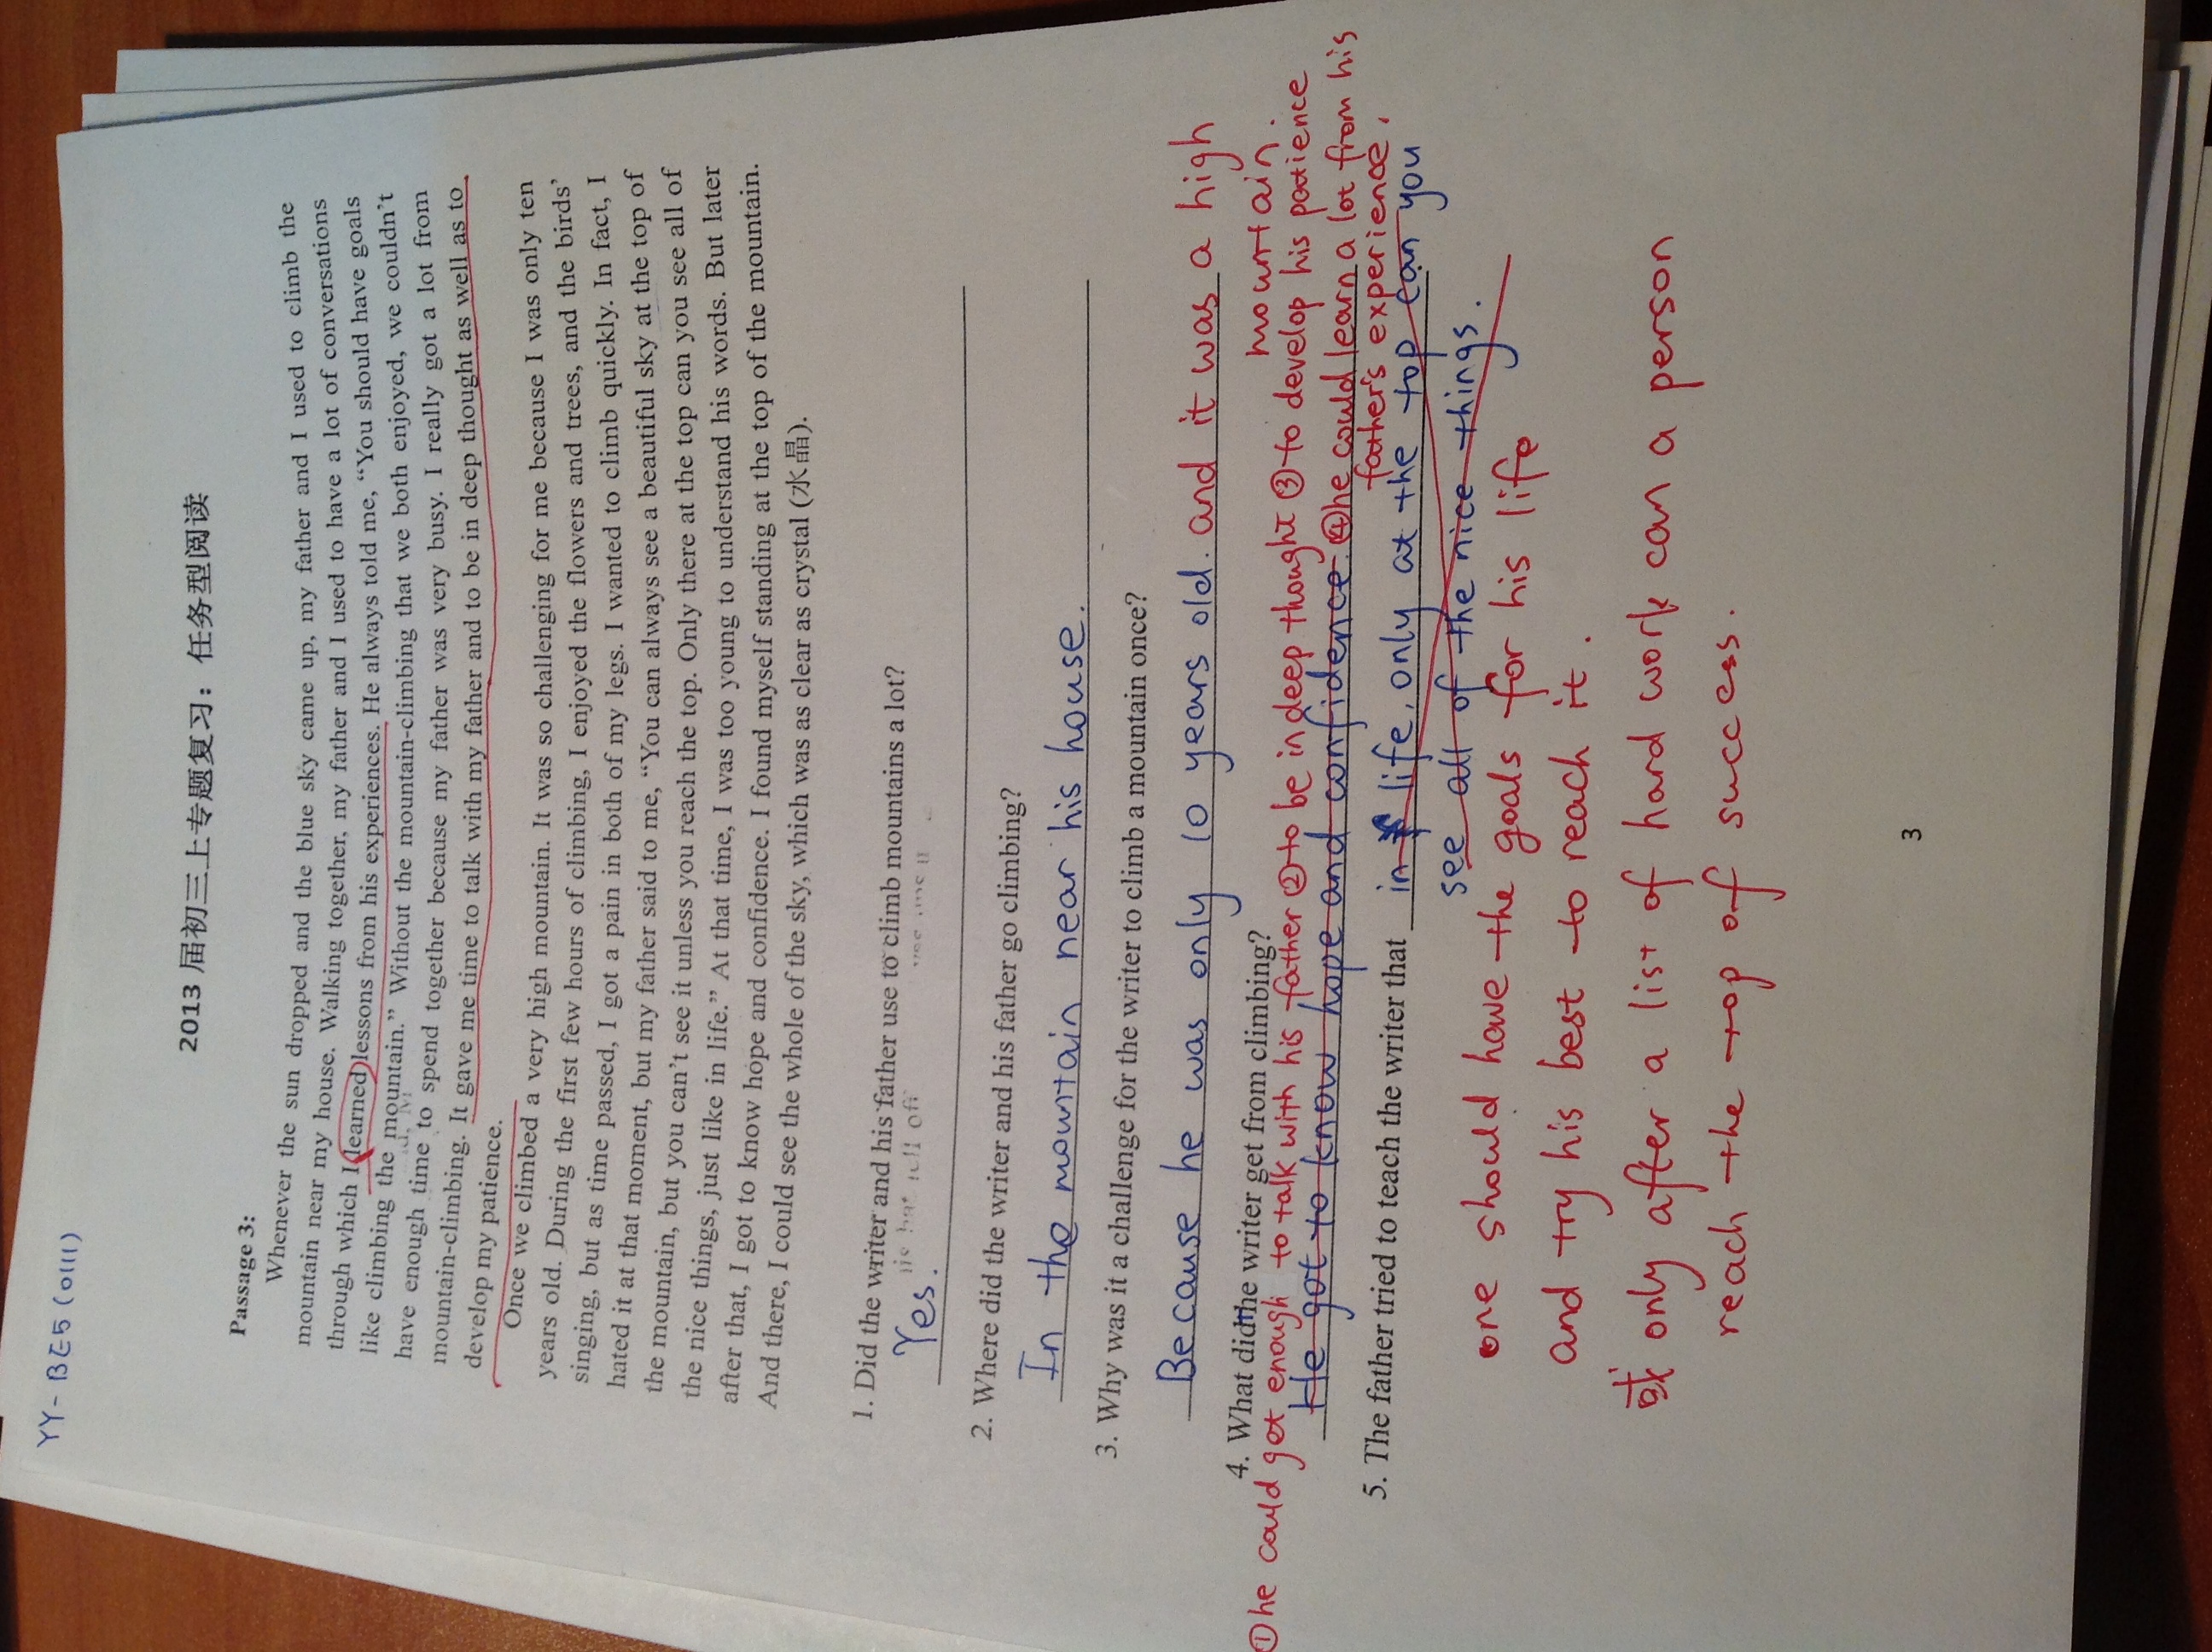 YY-BE5 (0111)
2013 届初三上专题复习：任务型阅读
Passage 3:
Whenever the sun dropped and the blue sky came up, my father and I used to climb the
mountain near my house. Walking together, my father and I used to have a lot of conversations
through which I learned lessons from his experiences. He always told me, “You should have goals
like climbing the mountain.” Without the mountain-climbing that we both enjoyed, we couldn’t
have enough time to spend together because my father was very busy. I really got a lot from
mountain-climbing. It gave me time to talk with my father and to be in deep thought as well as to
develop my patience.
Once we climbed a very high mountain. It was so challenging for me because I was only ten
years old. During the first few hours of climbing, I enjoyed the flowers and trees, and the birds’
singing, but as time passed, I got a pain in both of my legs. I wanted to climb quickly. In fact, I
hated it at that moment, but my father said to me, “You can always see a beautiful sky at the top of
the mountain, but you can’t see it unless you reach the top. Only there at the top can you see all of
the nice things, just like in life.” At that time, I was too young to understand his words. But later
after that, I got to know hope and confidence. I found myself standing at the top of the mountain.
And there, I could see the whole of the sky, which was as clear as crystal (水晶).
1. Did the writer and his father use to climb mountains a lot?
Yes.
2. Where did the writer and his father go climbing?
In the mountain near his house.
3. Why was it a challenge for the writer to climb a mountain once?
Because he was only 10 years old. and it was a high
mountain.
4. What did the writer get from climbing?
①he could get enough to talk with his father ②to be in deep thought ③to develop his patience
He got to know hope and confidence. ④he could learn a lot from his
father's experience.
5. The father tried to teach the writer that in life, only at the top can you
see all of the nice things.
one should have the goals for his life
and try his best to reach it.
或 only after a list of hard work can a person
reach the top of success.
3